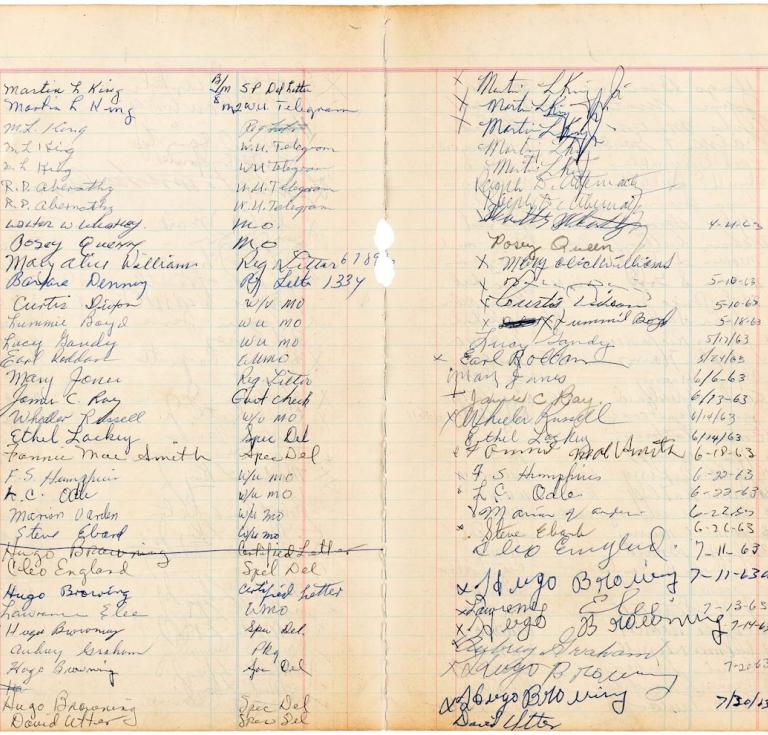 Martin L King B/M SP Del Letter X Martin L King Jr
Martin L King & M2 W.U. Telegram X Martin L King Jr
M.L. King Reg Letter X Martin L King Jr
M L King W.U. Telegram Martin L King
M L King W U Telegram Martin L King
R.D. Abernathy W.U. Telegram Ralph D. Abernathy
R.D. Abernathy W.U. Telegram Ralph D Abernathy
Walter W Wheatley. M.O. 4-4-63
Posey Queen M O Posey Queen
Mary Alice Williams Reg Letter 6789 X Mary Alice Williams
Barbara Denney Reg Letter 1334 X 5-10-63
Curtis Dixon W/U MO X Curtis Dixon 5-10-63
Lummie Boyd W U MO X X Lummie Boyd 5-18-63
Lucy Gandy W U MO Lucy Gandy 5/17/63
Earl WUMO X Earl 5/24/63
Mary Jones Reg. Letter Mary Jones 6/6-63
James C. Ray Govt check James C Ray. 6/13-63
Wheeler Russell W/U MO X Wheeler Russell 6/14/63
Ethel Lackey Spec Del Ethel Lackey 6/14/63
Fannie Mae Smith Spec Del Fannie Mae Smith 6-18-63
F.S. Humphries W/U MO X F S Humphries 6-22-63
L.C. Odle W/U MO L C Odle 6-22-63
Marion Varden W/U MO X Marion 6-22-63
Steve Ebard W/U MO X Steve Ebard 6-26-63
Hugo Browning Certified Letter
Cleo England Spel Del Cleo England. 7-11-63
Hugo Browing Certified Letter X Hugo Browning 7-11-63
Lawrence Elee WMO X Lawrence 7-13-63
Hugo Browning Spec Del. X Hugo Browning 7-14-63
Aubry Graham Pkg Aubrey Graham
Hugo Browning Spe Del X Hugo Browning 7-20-63
Hugo Browning Spec Del X Hugo Browning 7/30/63
David Utter Spec Del David Utter